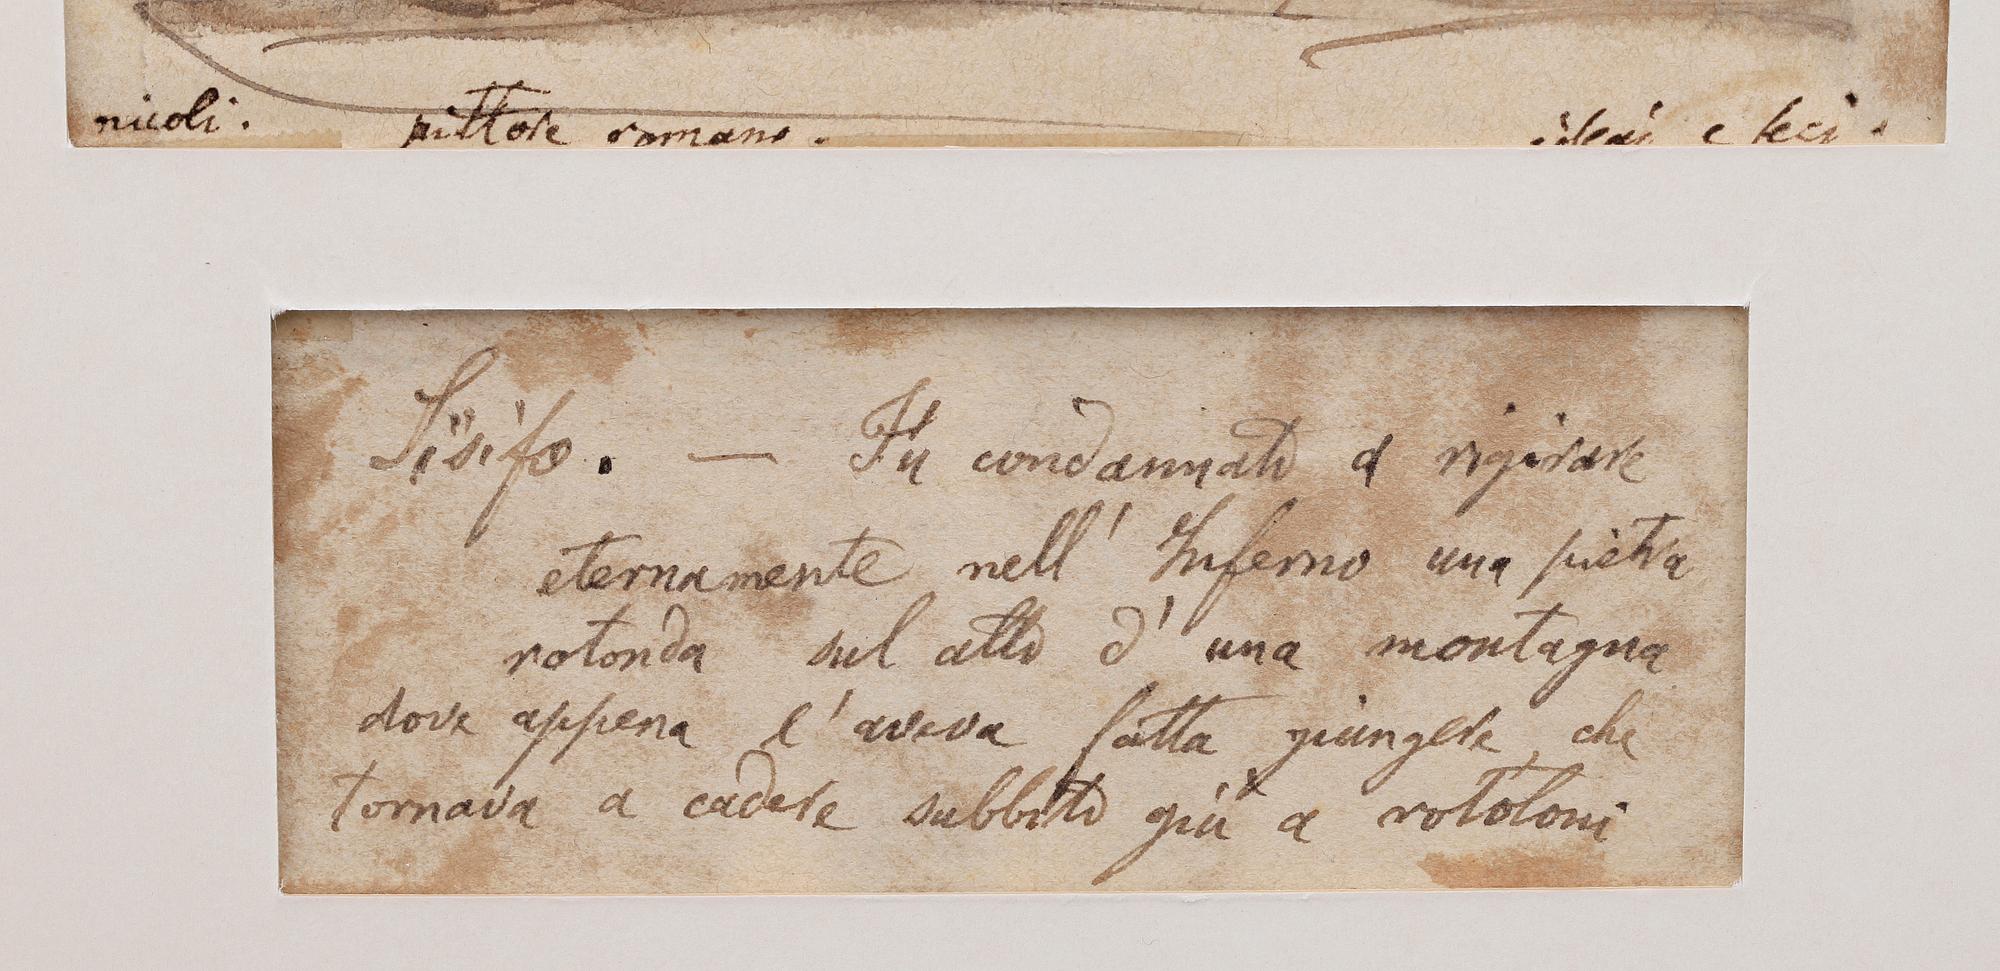 nicoli. pittore romano. ideai e feci.
Sisifo. — Fu condannato a rigirare
eternamente nell' Inferno una pietra
rotonda sul alto d' una montagna
dove appena l' aveva fatta giungere che
tornava a cadere subbito giù a rotoloni